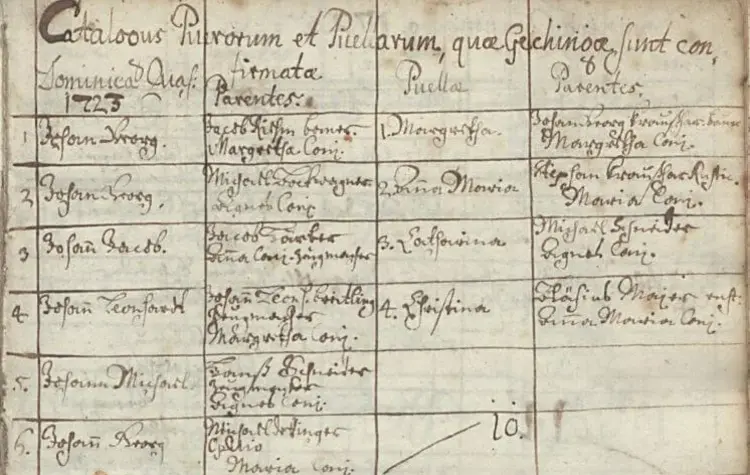 Catalogus Puerorum et Puellarum, quae Gechingae sunt con
firmatae
Dominica Quas:
1723
Parentes.
Puellae
Parentes.
1 Johan Georg.
Jacob
Margretha Conj.
1. Margretha.
Johan Georg
Margretha Conj.
2 Johan Georg.
Michael
Agnes Conj.
2. Anna Maria
Stephan
Maria Conj.
3 Johan̄ Jacob.
Jacob
Anna Conj. Zeugmacher
3. Catharina
Michael Schneider
Agnes Conj.
4. Johan̄ Leonhardt
Johan̄ Leonh.
Zeugmacher
Margretha Conj.
4. Christina
Blasius Majer
Anna Maria Conj.
5. Johann Michael
Hanß Schneider
Zeugmacher
Agnes Conj.
6. Johan̄ Georg
Michael
Maria Conj.
10.